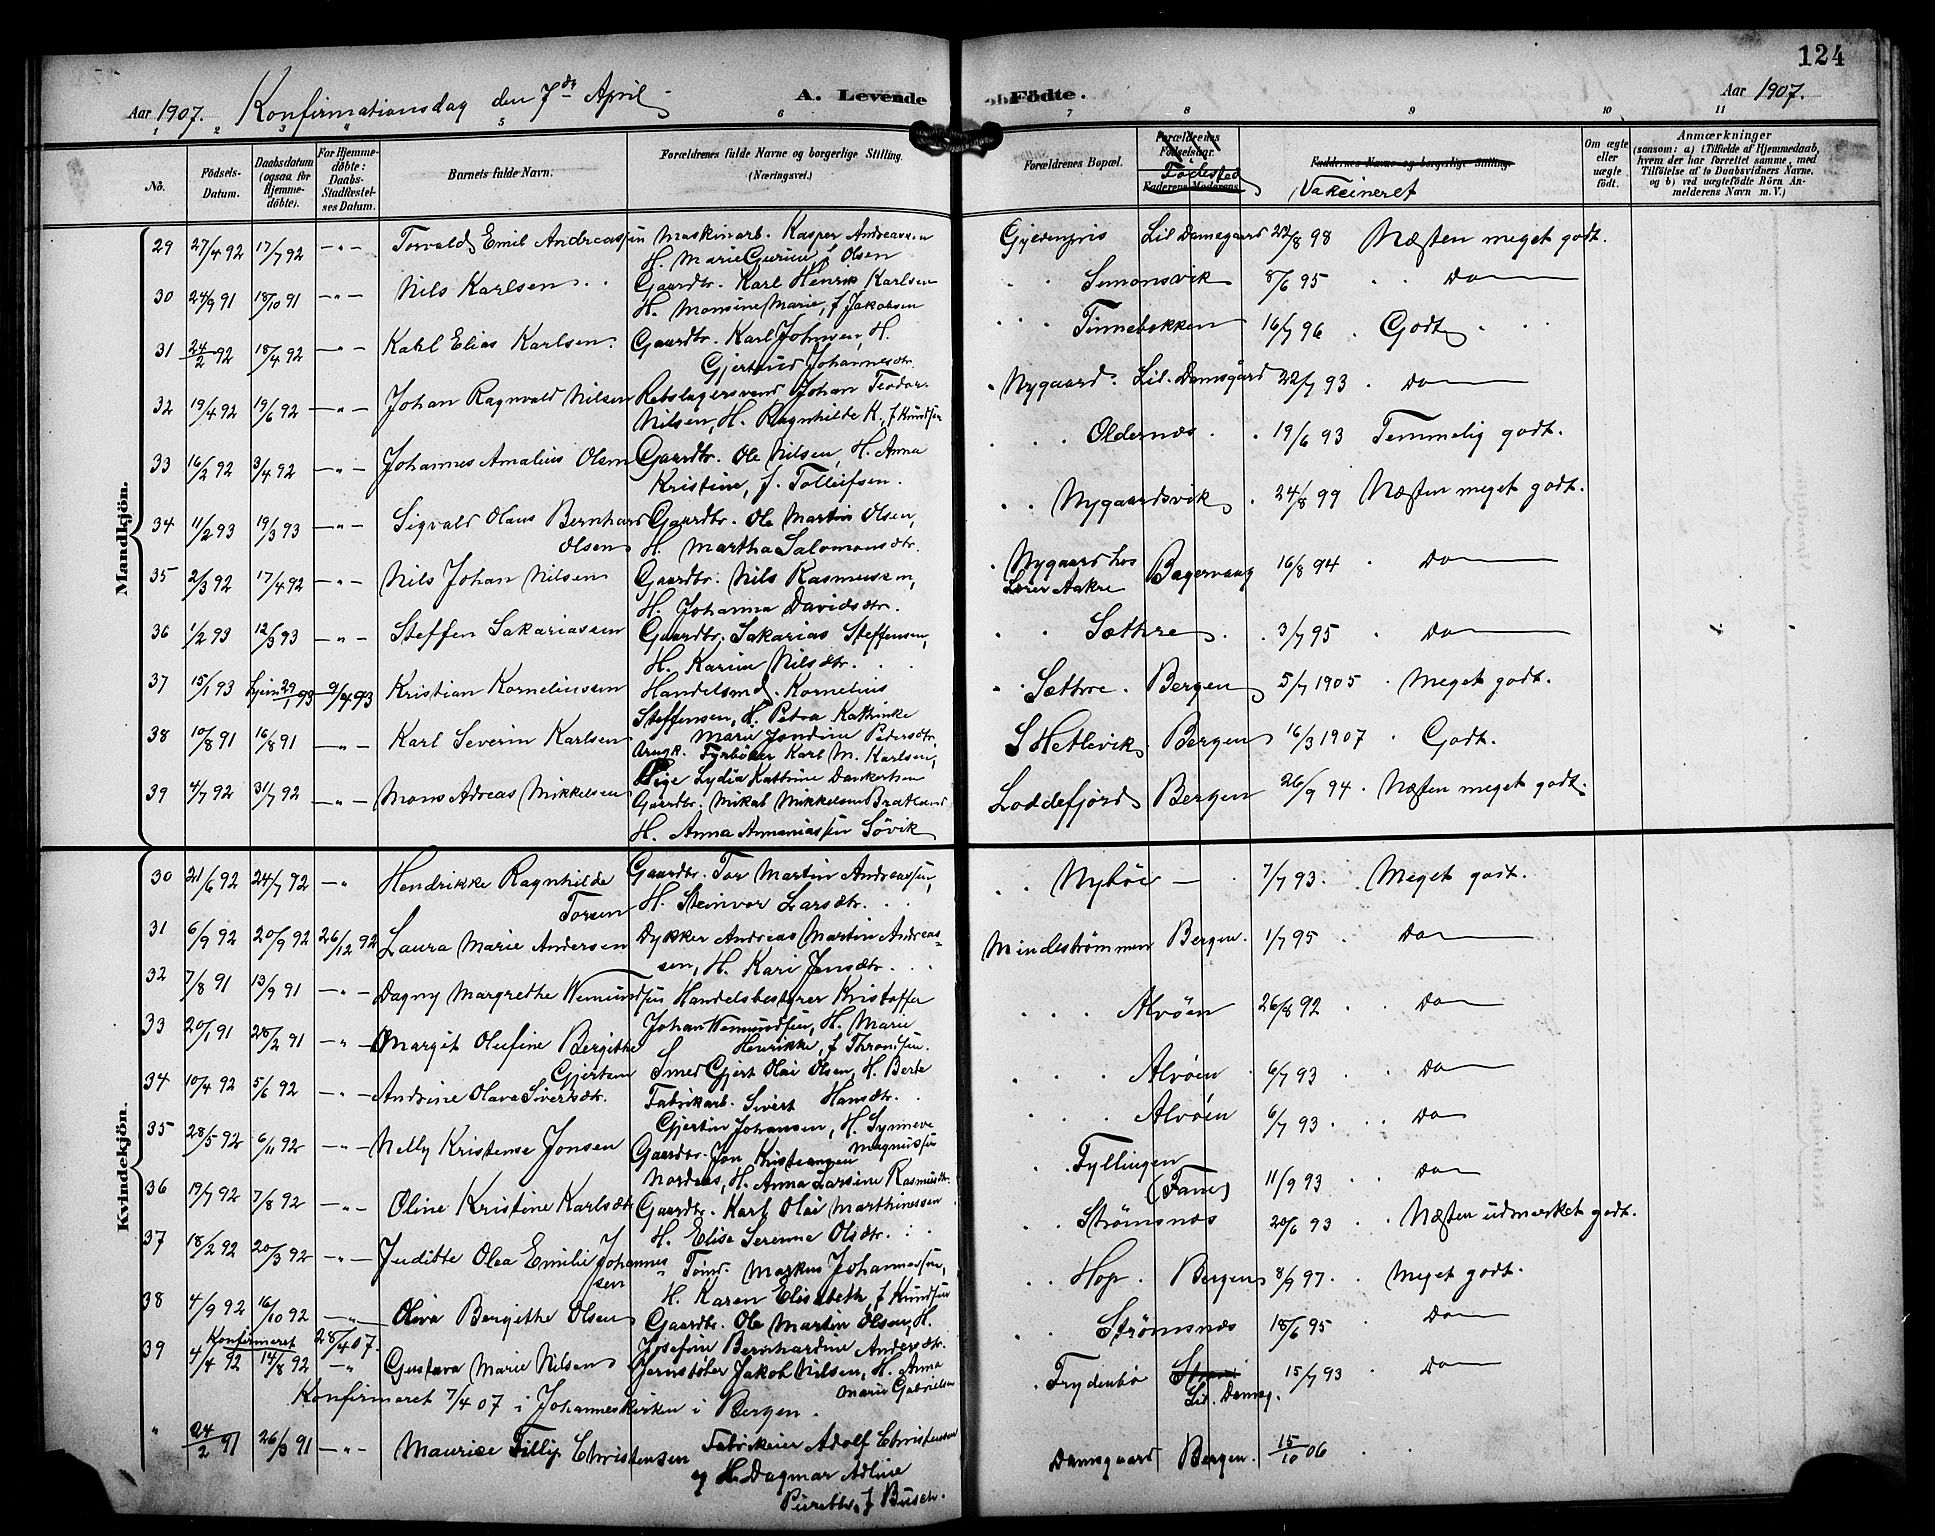 124
Aar 1907. Konfirmationsdag den 7de April
A. Levende Födte.
Aar 1907.
1 2 3 5 6 7 8 9 10 11
No.
Födsels-Datum.
Daabsdatum (ogsaa for Hjemmedöbte).
For Hjemmedöbte: Daabs-Stadfæstelses Datum.
Barnets fulde Navn.
Forældrenes fulde Navne og borgerlige Stilling. (Næringsvei.)
Forældrenes Bopæl.
Forældrenes Födselsaar. Faderens Moderens
Födested
Faddernes Navne og borgerlige Stilling
Vakcineret
Om ægte eller uægte födt.
Anmærkninger (saasom: a) i Tilfælde af Hjemmedaab, hvem der har forrettet samme, med Tilföielse af to Daabsvidners Navne, og b) ved uægtefödte Börn Anmelderens Navn m. V.)
Mandkjön.
29 27/4 92 17/7 92 —„— Torvald Emil Andreassen Maskinarb. Kasper Andreassen Lil. Damsgaard 22/8 98 Næsten meget godt.
H. Marie f Olsen
30 24/9 91 18/10 91 —„— Nils Karlsen Gaardbr. Karl Henrik Karlsen Simonsvik 8/6 95 Do
H. Monsine Marie, f Jakobsen
31 24/2 92 18/4 92 —„— Karl Elias Karlsen. Gaardbr. Karl Johnsen, H. Tinnebakken 16/7 96 Godt
Gjertrud Johannesdtr.
32 19/4 92 19/6 92 —„— Johan Ragnvald Nilsen Rebslagersvend Johan Teodor Nygaard. Lil. Damsgård 22/7 93 Do
Nilsen, H. Ragnhilde K., f Knudsen
33 16/2 92 3/4 92 —„— Johannes Amalius Olsen Gaardbr. Ole Nilsen, H. Anna Oldernæs 19/6 93 Temmelig godt.
Kristine, f. Tolleifsen.
34 11/2 93 19/3 93 —„— Sigvald Olaus Bernhard Gaardbr. Ole Martin Olsen, Nygaardsvik 24/8 99 Næsten meget godt.
Olsen H. Martha Salomonsdtr.
35 2/3 92 17/4 92 —„— Nils Johan Nilsen Gaardbr. Nils Rasmussen, Nygaard hos 16/8 94 Do
H. Johanna Davidsdtr. Aakre
36 1/2 93 12/3 93 —„— Steffen Sakariassen Gaardbr. Sakarias Steffensen, Sæthre 3/7 95 Do
H. Karine Nilsdtr.
37 15/1 93 hjem 29/1 93 9/4 93 Kristian Korneliussen Handelsmd. Kornelius Sæthre. Bergen 5/7 1905 Meget godt.
Steffensen, H. Petra Kathinke
Marie Jondine Pedersdtr.
38 10/8 91 16/8 91 —„— Karl Severin Karlsen Ungk. Fyrböter Karl M. Karlsen, S Hetlevik Bergen 16/3 1907 Godt.
Pige Lydia Kathrine Dankertsen
39 4/7 92 31/7 92 —„— Mons Adreas Mikkelsen Gaardbr. Mikal Mikkelsen Bratland Loddefjord Bergen 26/9 94 Næsten meget godt.
H. Anna Annaniassen Sövik
Kvindekjön.
30 21/6 92 24/7 92 —„ Hendrikke Ragnhilde Gaardbr. Tor Martin Andreassen, Nyböe — 7/7 93. Meget godt.
Torsen H. Steinvor Larsdtr.
31 6/9 92 20/9 92 26/12 92 Laura Marie Andersen Dykker Andreas Martin Andreas- Mindeströmmen Bergen. 1/7 95 Do
sen, H. Kari Jensdtr.
32 7/8 91 13/9 91 —„— Dagny Margrethe Wemundsen Handelsbestyrer Kristoffer Alvöen 26/8 92 Do
Johan Wemundsen, H. Marie
Henrikke, f Thronsen.
33 20/1 91 28/2 91 —„— Margit Olufine Bergithe Smed Gjert Olai Olsen, H. Berte Alvöen 6/7 93 Do
Gjertsen Hansdtr.
34 10/4 92 5/6 92 —„— Andrine Olava Sivertsdtr. Fabrikarb. Sivert Alvöen 6/7 93 Do
Gjertin Johansen, H. Synneve
Magnussen
35 28/5 92 6/11 92 —„— Nelly Kristense Jonsen Gaardbr. Jon Kristiansen Fyllingen 11/9 93 Do
Nordaas, H. Anna Larsine Rasmusdtr. (Fane)
36 19/7 92 7/8 92 —„— Oline Kristine Karlsdtr Gaardbr. Karl Olai Marthinussen Strömsnæs 20/6 93 Næsten udmærket godt.
H. Elise Serenne Olsdtr.
37 18/2 92 20/3 92 —„— Juditte Olea Emilie Johannes Tömd. Markus Johannessen, Hop. Bergen 8/9 97. Meget godt.
sen H. Karen Elisabeth, f Knudsen
38 4/9 92 16/10 92 —„— Oliva Bergithe Olsen Gaardbr. Ole Martin Olsen, H. Strömsnæs 18/6 95 Do
Konfirmeret 28/4 07. Josefine Bernhardine Andersdtr.
39 4/4 92 14/8 92 —„ Gustava Marie Nilsen Jernstöber Jakob Nilsen, H. Anna Frydenbö Lil. Damsg. 15/7 93 Do
Marie Gabrielsen
Konfirmeret 7/4 07 i Johanneskirken i Bergen.
„ 24/2 91 26/3 91 —„— Maurise Fillip Christensen Fabrikeier Adolf Christensen Damsgaard Bergen. 15/10 06
og H. Dagmar Adline
f Busch.